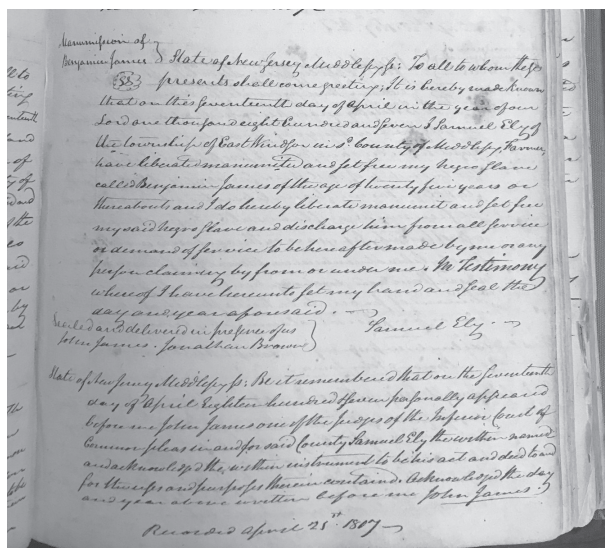 Manumission of
Benjamin James } State of New Jersey Middlesex ss: To all to whom these
presents shall come greeting; It is hereby made known
that on this seventeenth day of April in the year of our
Lord one thousand eight hundred and seven I Samuel Ely of
the township of East Windsor in sd. County of Middlesex, Farmer,
have liberated manumitted and set free my negro slave
called Benjamin James of the age of twenty five years or
thereabouts and I do hereby liberate manumit and set free
my said negro slave and discharge him from all service
or demand of service to be hereafter made by me or any
person claiming by from or under me. In Testimony
whereof I have hereunto set my hand and seal the
day and year aforesaid.
Sealed and delivered in presence of us } Samuel Ely
John James. Jonathan Brown
State of New Jersey Middlesex ss: Be it remembered that on the seventeenth
day of April Eighteen hundred & seven personally appeared
before me John James one of the Judges of the Inferior Court of
Common pleas in and for said County Samuel Ely the within named
and acknowledged the within instrument to be his act and deed to and
for the uses and purposes therein contained. Acknowledged the day
and year above written before me John James.
Recorded April 21st 1807